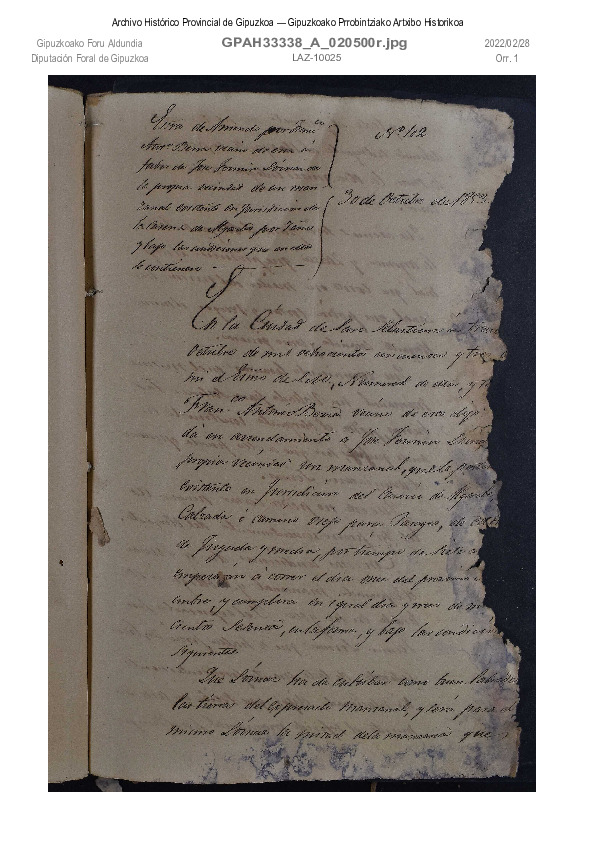 Archivo Histórico Provincial de Gipuzkoa — Gipuzkoako Prrobintziako Artxibo Historikoa
Gipuzkoako Foru Aldundia
Diputación Foral de Gipuzkoa
GPAH33338_A_020500r.jpg
LAZ-10025
2022/02/28
Orr. 1
de Arriendo por Fran.co
Ant.o vecino de esta á
favor de José Fermin de
la propia vecindad de un man
zanal en Jurisdiccion de
de por
y bajo las condiciones que en ella
se contienen
Nº 112
30 de Octubre de 185
En la Ciudad de San Sebastian á
Octubre de mil ochocientos cincuenta y tre
mi el Esno de , Numeral de ella, y
Fran.co Antonio vecino de esta dijo
dá en arrendamiento á José Fermin
propia vecindad un manzanal, que le
en Jurisdiccion del
Calzada ó camino viejo para Pasages, de
de Yugada y media, por tiempo de siete
empezarán á correr el dia once del proximo
embre, y cumplirá en igual dia y mes de
cientos Sesenta, y bajo las condicion
siguientes
Que ha de cultibar como buen Labrador
las tierras del espresado Manzanal, y será para el
mismo la mitad dela manzana que